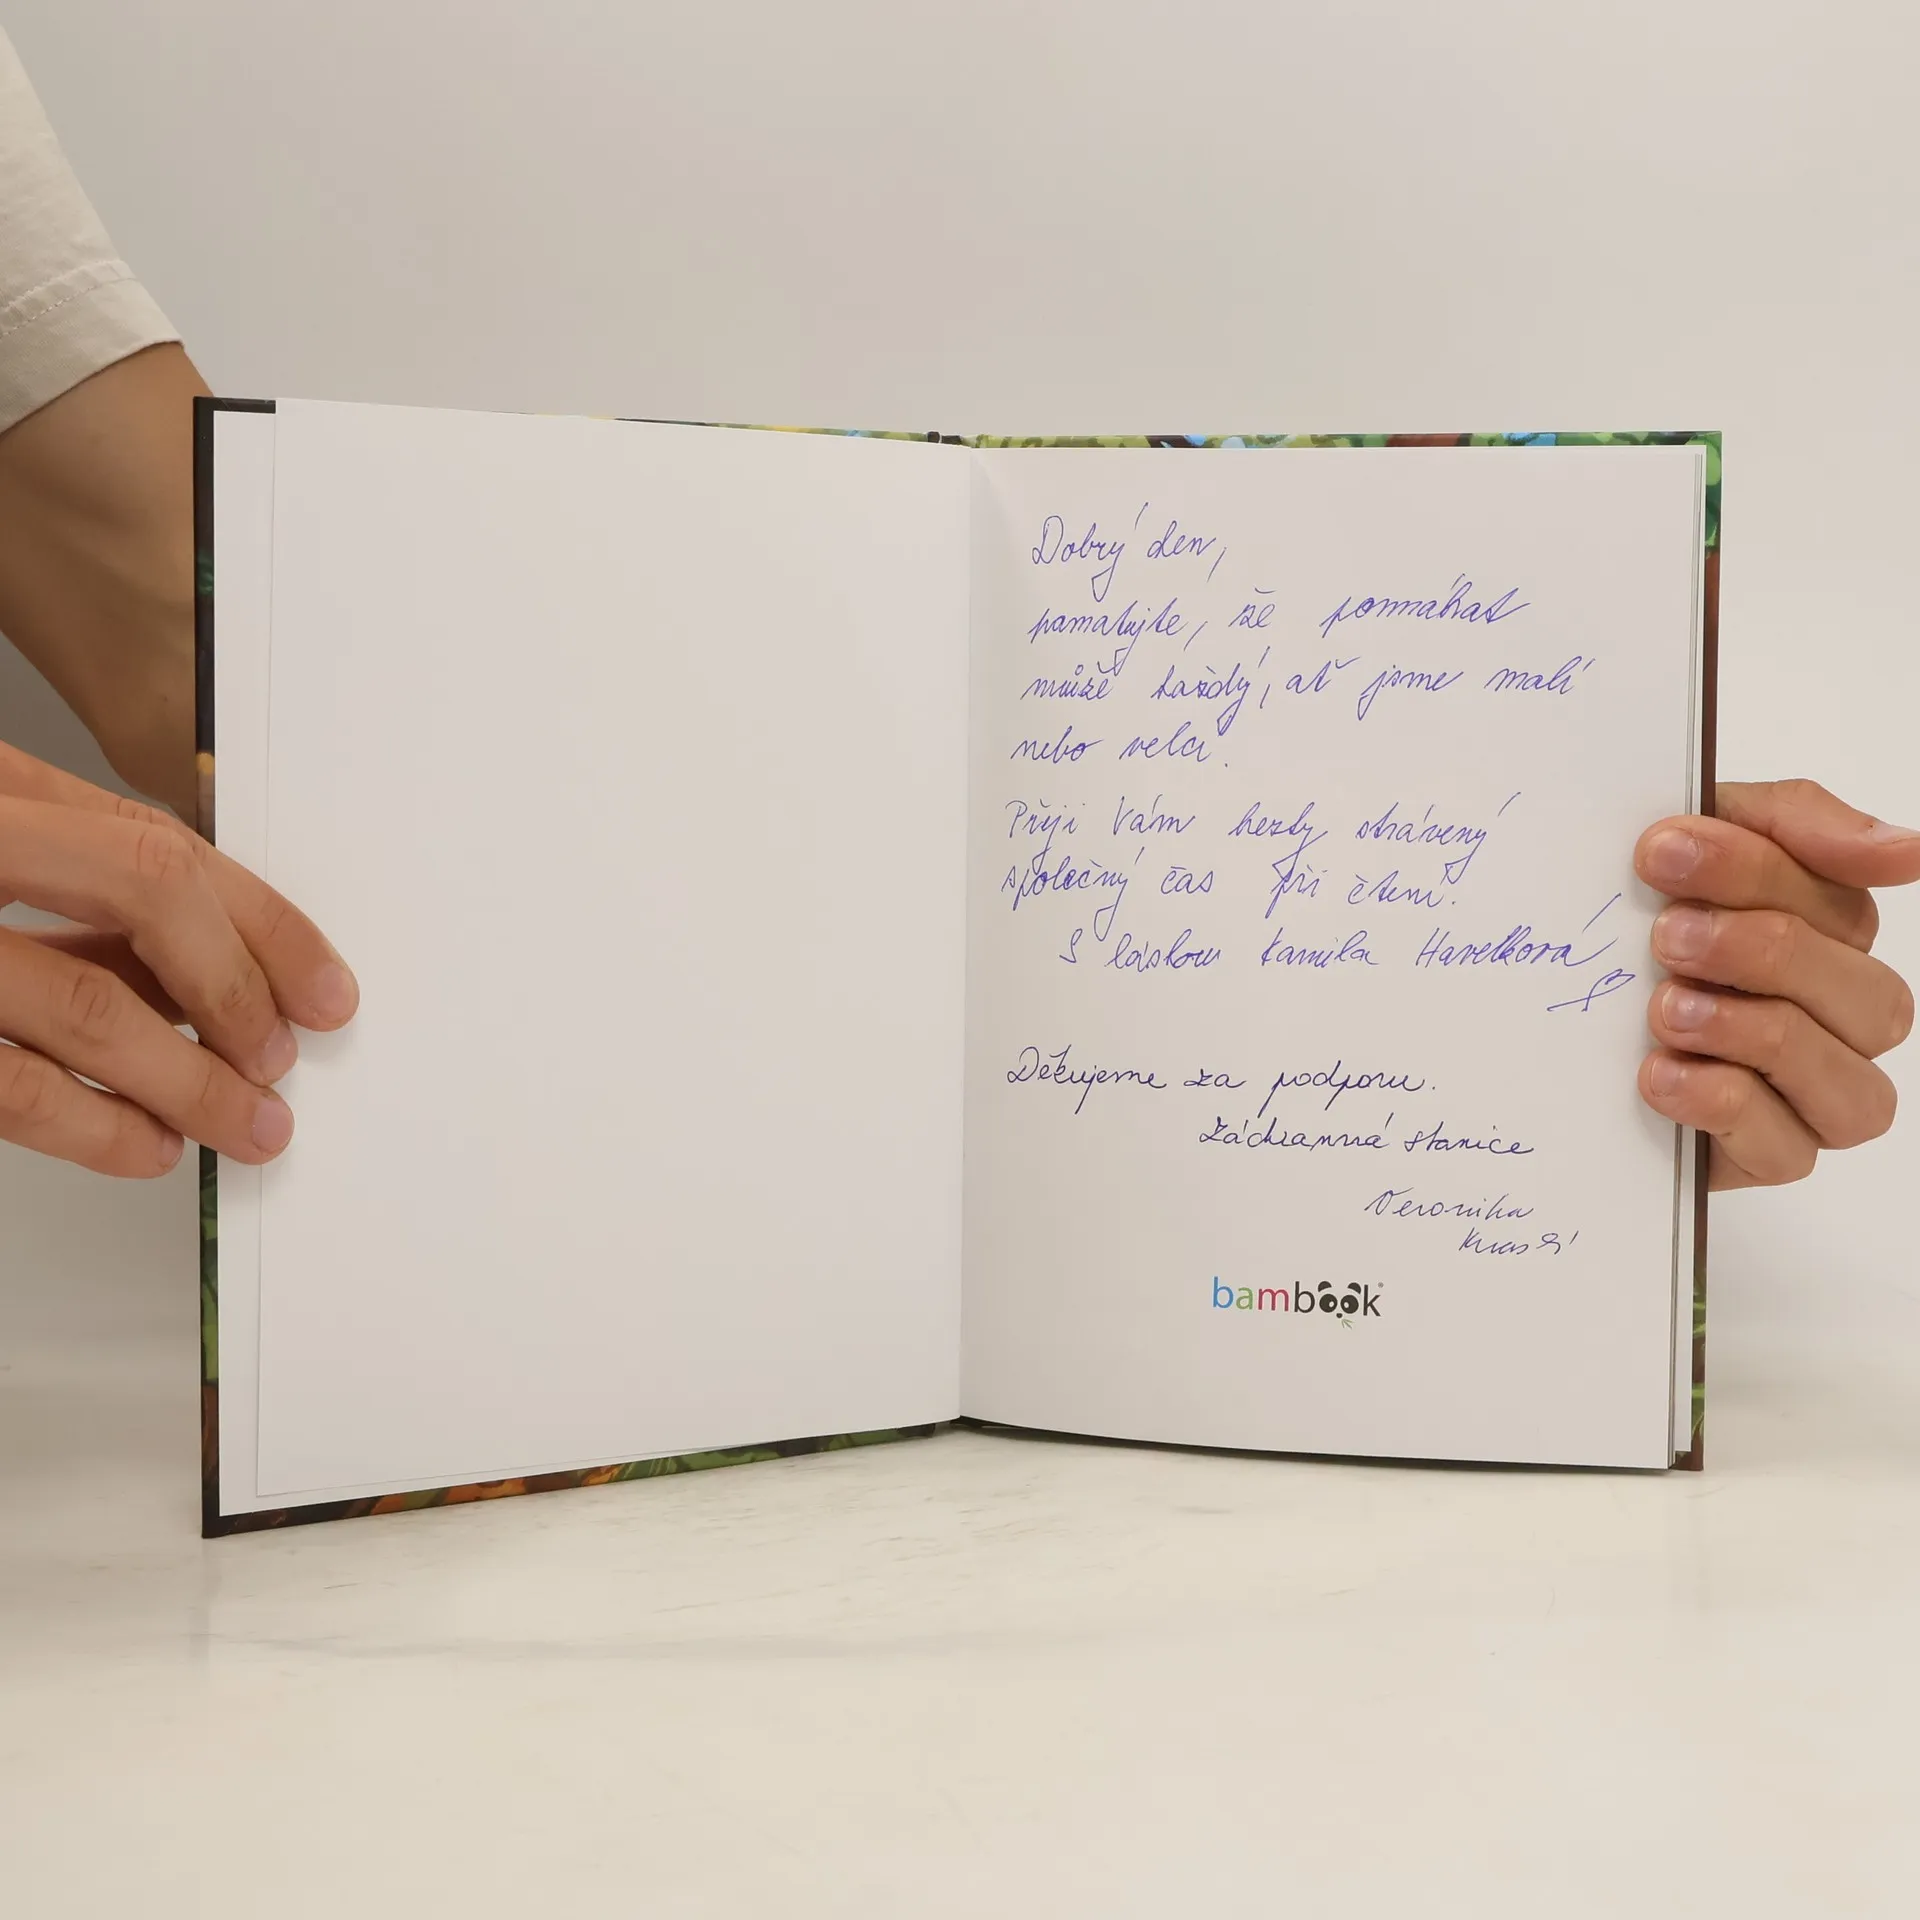 Dobrý den,
pamatujte, že pomáhat
může každý, ať jsme malí
nebo velcí.
Přeji Vám hezky strávený
společný čas při čtení.
S láskou Kamila Havelková
Děkujeme za podporu.
Záchranná stanice
Veronika
bambook